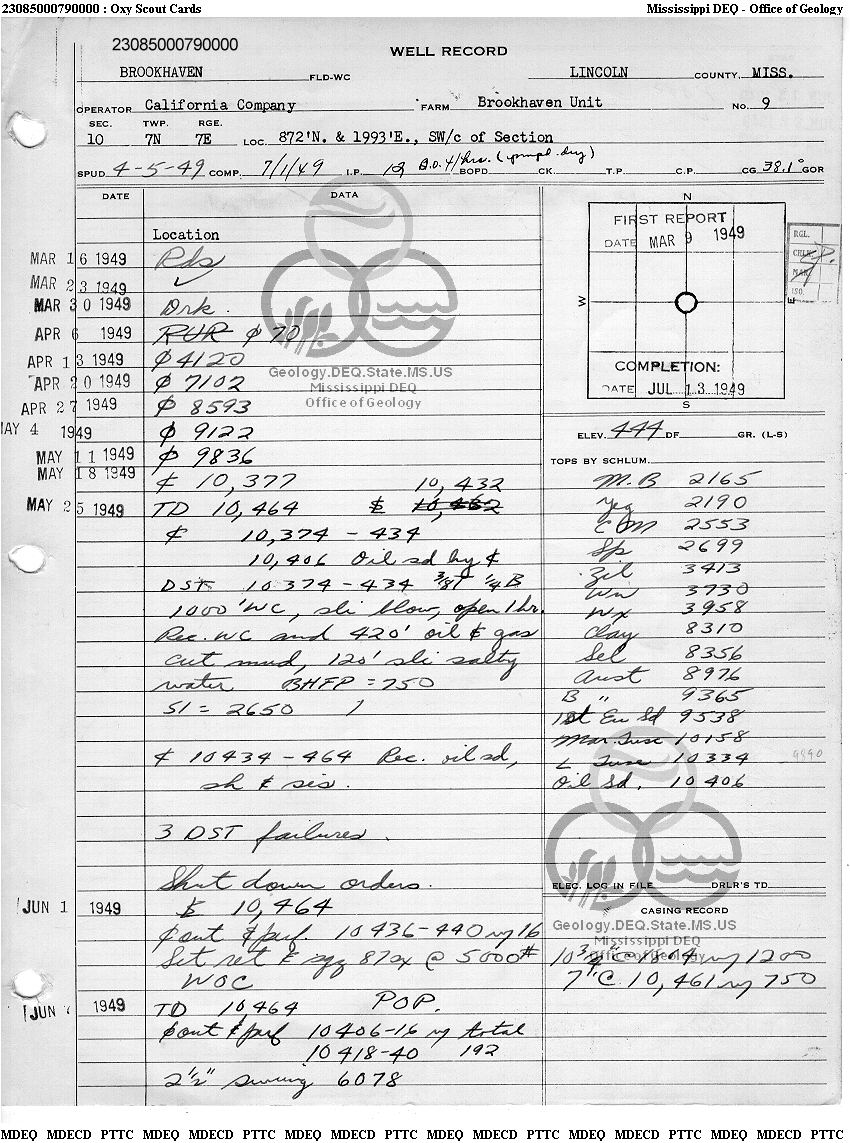 23085000790000 : Oxy Scout Cards
Mississippi DEQ - Office of Geology
23085000790000
WELL RECORD
BROOKHAVEN FLD-WC LINCOLN COUNTY, MISS.
OPERATOR California Company FARM Brookhaven Unit NO. 9
SEC. TWP. RGE.
10 7N 7E LOC. 872'N. & 1993'E., SW/c of Section
SPUD 4-5-49 COMP. 7/1/49 I.P. 12 B.O. 4/hrs. BOPD CK. T.P. C.P. CG 38.1° GOR
DATE DATA
Location
MAR 16 1949 Rds
MAR 23 1949 ✓
MAR 30 1949 Drk.
APR 6 1949 RUR ₵ 70
APR 13 1949 ₵ 4120
APR 20 1949 ₵ 7102
APR 27 1949 ₵ 8593
MAY 4 1949 ₵ 9122
MAY 11 1949 ₵ 9836
MAY 18 1949 ₵ 10,377 10,432
MAY 25 1949 TD 10,464 10,462
₵ 10,374 - 434
10,406 Oil sd by ₵
DST 10374-434 3/8T 1/4B
1000' WC, sli blow, open 1 hr.
Rec. WC and 420' oil & gas
cut mud, 120' sli salty
water BHFP = 750
SI = 2650
₵ 10434-464 Rec. oil sd,
sh & sis.
3 DST failures.
Shut down orders.
JUN 1 1949 10,464
₵ out & perf. 10436-440 w/16
Set ret & sqz 87 sx @ 5000#
WOC
JUN 1949 TD 10,464 POP.
₵ out & perf 10406-16 w/ total
10418-40 192
2½" swing 6078
N
FIRST REPORT
DATE MAR 9 1949
W E
COMPLETION:
DATE JUL 13 1949
S
RGL.
CHLK.
MAR.
ISO.
ELEV. 444 DF GR. (L-S)
TOPS BY SCHLUM.
M.B 2165
Yeg 2190
C M 2553
Sp 2699
Zil 3413
Wn 3730
Wx 3958
Clay 8310
Sel 8356
Aust 8976
B " 9365
1st Eu Sd 9538
Mar Tusc 10158
L Tusc 10334
Oil Sd. 10406
ELEC. LOG IN FILE DRLR'S TD.
CASING RECORD
10 3/4" C 1844 w/ 1200
7" C 10,461 w/ 750
Geology.DEQ.State.MS.US
Mississippi DEQ
Office of Geology
Geology.DEQ.State.MS.US
Mississippi DEQ
Office of Geology
MDEQ MDECD PTTC MDEQ MDECD PTTC MDEQ MDECD PTTC MDEQ MDECD PTTC MDEQ MDECD PTTC MDEQ MDECD PTTC